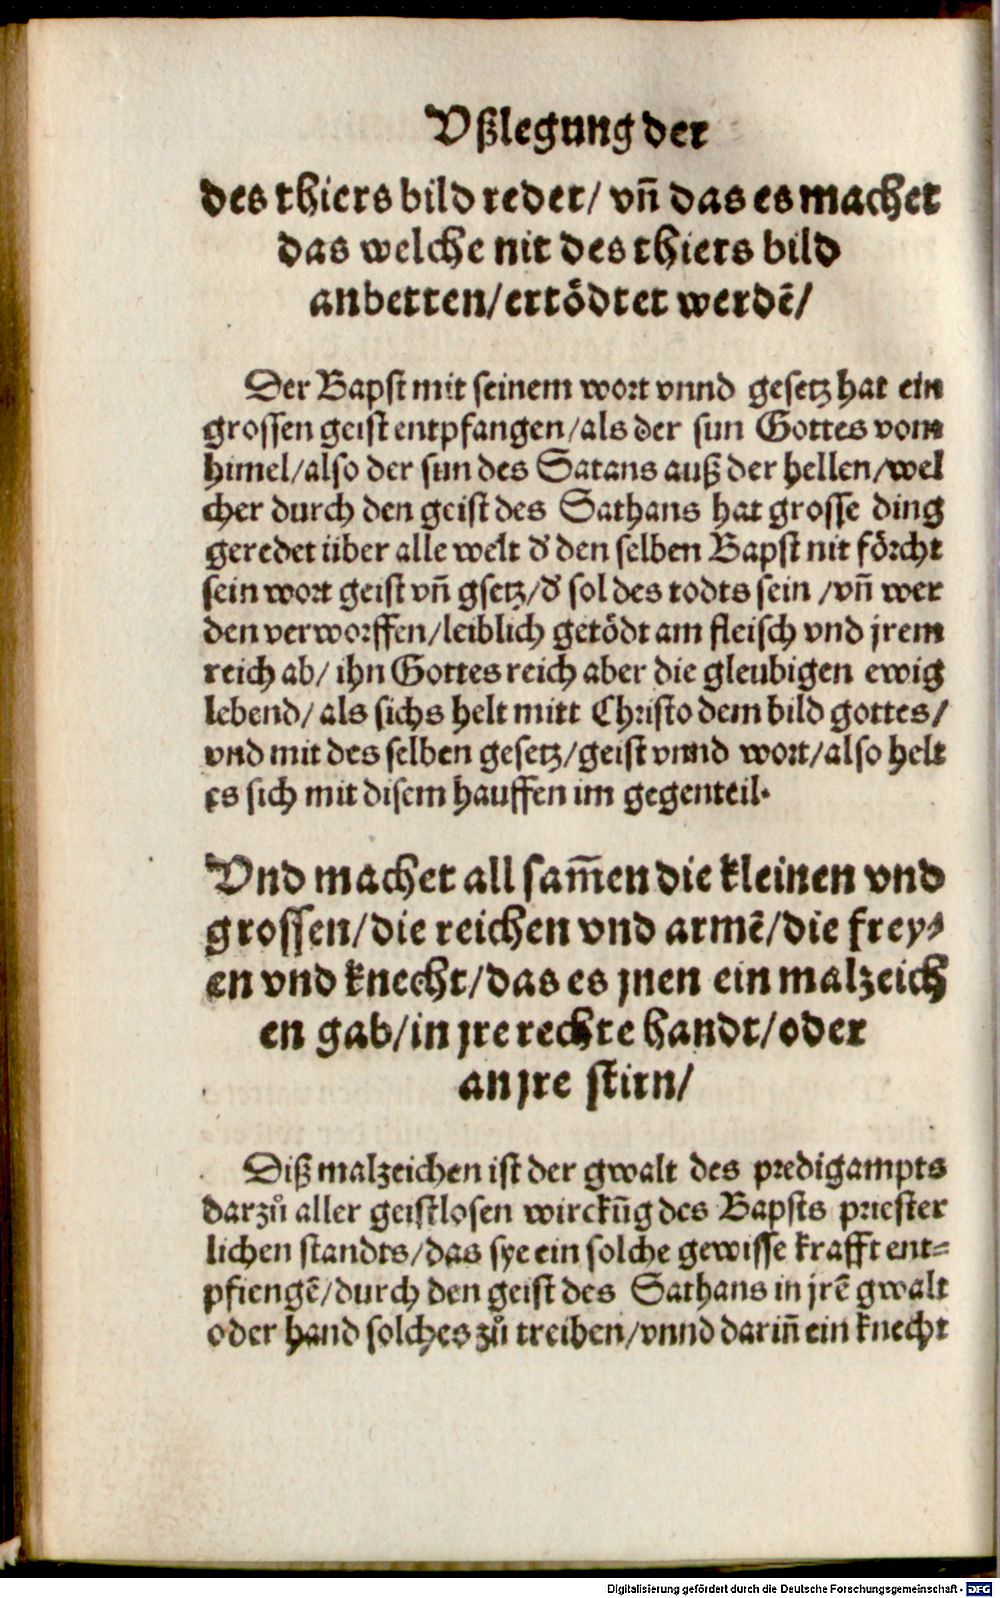 Vßlegung der
des thiers bild redet/ vñ das es machet
das welche nit des thiers bild
anbetten/ertödtet werdē/
Der Bapst mit seinem wort vnnd gesetz hat ein
grossen geist entpfangen/als der sun Gottes vom
himel/also der sun des Satans auß der hellen/wel
cher durch den geist des Sathans hat grosse ding
geredet über alle welt d' den selben Bapst nit förcht
sein wort geist vñ gsetz/d' sol des todts sein /vñ wer
den verworffen/leiblich getödt am fleisch vnd jrem
reich ab/ ihn Gottes reich aber die gleubigen ewig
lebend/ als sichs helt mitt Christo dem bild gottes/
vnd mit des selben gesetz/geist vnnd wort/also helt
es sich mit disem hauffen im gegenteil.
Vnd machet all sam̄en die kleinen vnd
grossen/die reichen vnd armē/die frey⸗
en vnd knecht/das es jnen ein malzeich
en gab/in jre rechte handt/oder
an jre stirn/
Diß malzeichen ist der gwalt des predigampts
darzů aller geistlosen wirckūg des Bapsts priester
lichen standts/das sye ein solche gewisse krafft ent⸗
pfiengē/durch den geist des Sathans in jrē gwalt
oder hand solches zů treiben/vnnd dariñ ein knecht
Digitalisierung gefördert durch die Deutsche Forschungsgemeinschaft - DFG